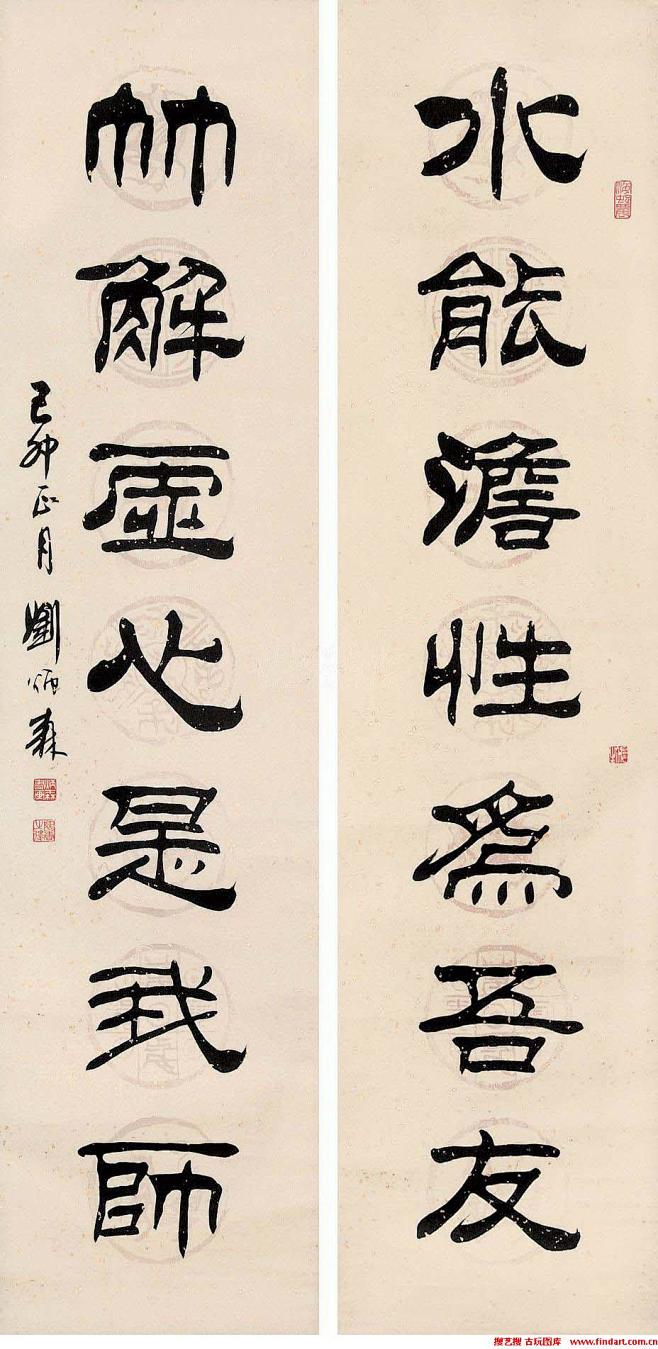 水能澹性爲吾友
竹解虛心是我師
己卯正月 劉炳森
搜艺搜 古玩图库 www.findart.com.cn